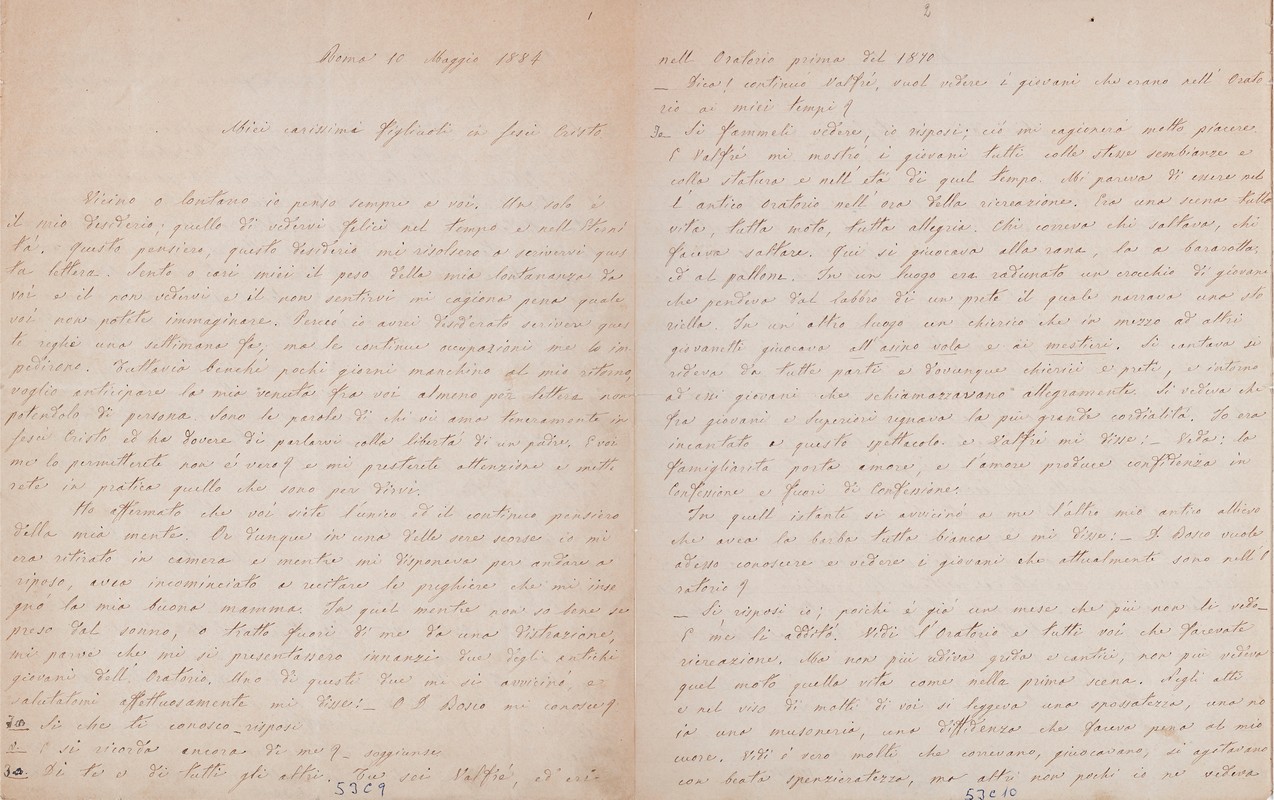 1
Roma 10 Maggio 1884
Miei carissimi figliuoli in Gesù Cristo
Vicino o lontano io penso sempre a voi. Un solo è
il mio desiderio; quello di vedervi felici nel tempo e nell'Eterni
tà. Questo pensiero, questo desiderio mi risolsero a scrivervi ques
ta lettera. Sento o cari miei il peso della mia lontananza da
voi e il non vedervi e il non sentirvi mi cagiona pena quale
voi non potete immaginare. Perciò io avrei desiderato scrivere ques
te righe una settimana fa, ma le continue occupazioni me lo im
pedirono. Tuttavia benchè pochi giorni manchino al mio ritorno,
voglio anticipare la mia venuta fra voi almeno per lettera non
potendolo di persona. Sono le parole di chi vi ama teneramente in
Gesù Cristo ed ha dovere di parlarvi colla libertà di un padre. E voi
me lo permetterete non è vero? e mi presterete attenzione e mette
rete in pratica quello che sono per dirvi.
Ho affermato che voi siete l'unico ed il continuo pensiero
della mia mente. Or dunque in una delle sere scorse io mi
era ritirato in camera e mentre mi disponeva per andare a
riposo, avea incominciato a recitare le preghiere che mi inse
gnò la mia buona mamma. In quel mentre non so bene se
preso dal sonno, o tratto fuori di me da una distrazione,
mi parve che mi si presentassero innanzi due degli antichi
giovani dell'Oratorio. Uno di questi due me si avvicinò, e
salutatomi affettuosamente mi disse: _ O D Bosco mi conosce?
Si che ti conosco _ risposi
E si ricorda ancora di me? _ soggiunse
Di te e di tutti gli altri. Tu sei Valfrè, ed eri
53C9
2
nell Oratorio prima del 1870
_ Dica! continuò Valfrè, vuol vedere i giovani che erano nell'Orato
rio ai miei tempi?
Io Si fammeli vedere, io risposi; ciò mi cagionerà molto piacere.
E Valfrè mi mostrò i giovani tutti colle stesse sembianze e
colla statura e nell'età di quel tempo. Mi pareva di essere nel
l antico Oratorio nell'ora della ricreazione. Era una scena tutta
vita, tutta moto, tutta allegria. Chi correva chi saltava, chi
faceva saltare. Qui si giuocava alla rana, la a bararotta,
ed al pallone. In un luogo era radunato un crocchio di giovani
che pendeva dal labbro di un prete il quale narrava una sto
riella. In un'altro luogo un chierico che in mezzo ad altri
giovanetti giuocava all'asino vola e ai mestieri. Si cantava si
rideva da tutte parti e dovunque chierici e preti, e intorno
ad essi giovani che schiamazzavano allegramente. Si vedeva che
fra giovani e superiori regnava la più grande cordialità. Io era
incantato a questo spettacolo e Valfrè mi disse: _ Veda: la
famigliarità porta amore, e l'amore produce confidenza in
Confessione e fuori di Confessione.
In quell istante si avvicinò a me l'altro mio antico allievo
che avea la barba tutta bianca e mi disse: _ D. Bosco vuole
adesso conoscere e vedere i giovani che attualmente sono nell'O
ratorio?
_ Si risposi io; poichè è già un mese che più non li vedo_
E me li additò. Vidi l'Oratorio e tutti voi che facevate
ricreazione. Ma non più udiva grida e cantici, non più vedeva
quel moto quella vita come nella prima scena. Negli atti
e nel viso di molti di voi si leggeva una spossatezza, una no
ia una musoneria, una diffidenza che faceva pena al mio
cuore. Vidi è vero molti che correvano, giuocavano, si agitavano
con beata spensieratezza, ma altri non pochi io ne vedeva
53C10